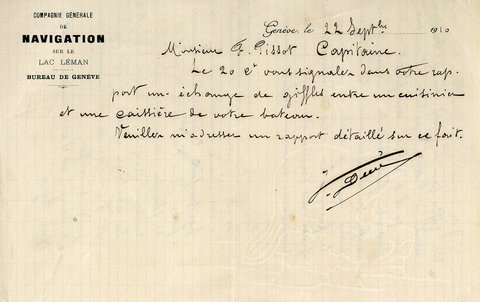 COMPAGNIE GÉNÉRALE
DE
NAVIGATION
SUR LE
LAC LÉMAN
BUREAU DE GENÈVE
Genève, le 22 Septbre 1910
Monsieur F. Pissot Capitaine.
Le 20 ct vous signalez dans votre rap-
port un échange de giffles entre un cuisinier
et une caissière de votre bateau.
Veuillez m'adresser un rapport détaillé sur ce fait.